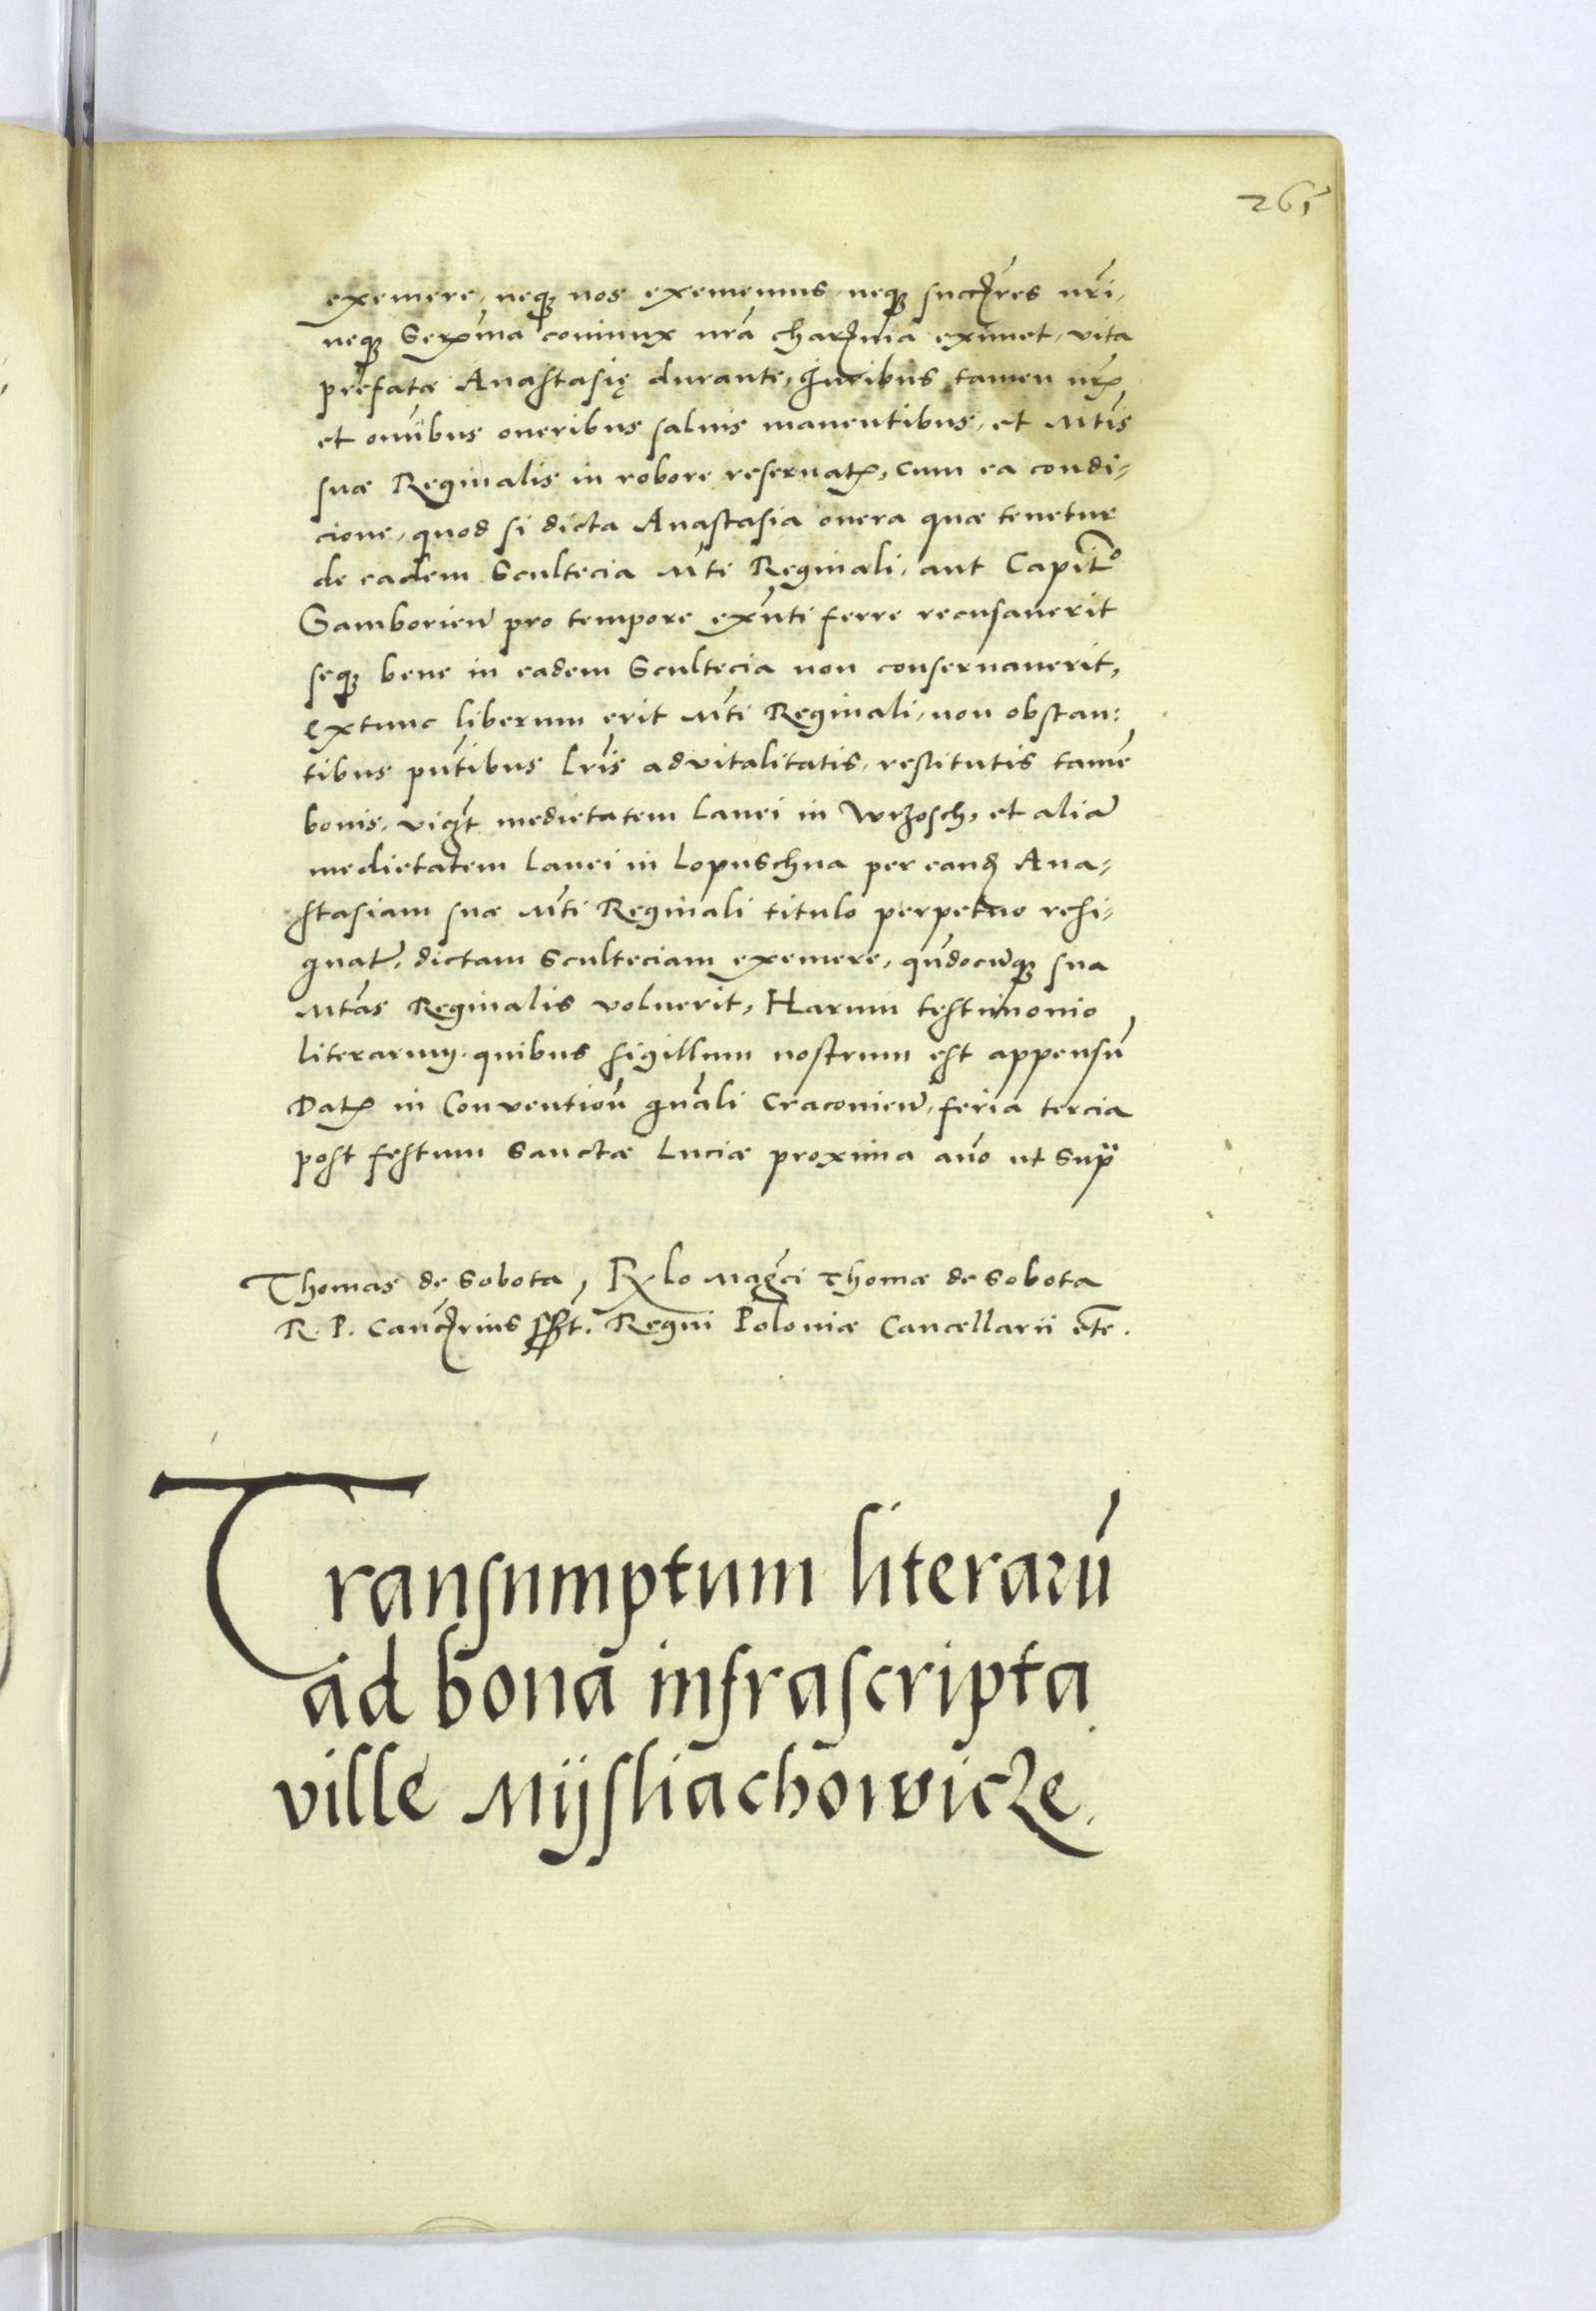 261
exemere, neq; nos exememus, neq; succ̃res nr̃i,
neq; Serm̃a coniunx nr̃a char̃ma eximet, vita
prefatæ Anastasię durante, iuribus tamen nr̃is
et om̃ibus oneribus salvis manentibus, et Mt̃is
suæ Reginalis in robore reservatis, cum ea condi-
cione, quod si dicta Anastasia onera quæ tenetur
de eadem Scultecia Mt̃i Reginali, aut Capit̃o
Samborien̄ pro tempore exñti ferre recusaverit
seq; bene in eadem Scultecia non conservaverit,
extunc liberum erit Mt̃i Reginali, non obstan:
tibus pñtibus Lr̃is advitalitatis, restitutis tamẽ
bonis, vicz̃t medietatem Lanei in Wrzosch, et aliã
medietatem Lanei in Lopuschna per eand̃ Ana-
stasiam suæ Mt̃i Reginali titulo perpetuo resi-
gnat̃, dictam Sculteciam exemere, qũdocũq; sua
Mt̃as Reginalis voluerit, Harum testimonio
literarum, quibus sigillum nostrum est appensũ
Dat̃ in Conventioñ gñali Cracovien̄, feria tercia
post festum Sanctæ Luciæ proxima ãno ut supᵃ
Thomas de Sobota, Rlo Mag̃ci Thomæ de Sobota
R. P. Canc̃rius sszt̃. Regni Poloniæ Cancellarii etc̃.
Transumptum literarũ
ad bona infrascripta
ville Mijsliachowicze.